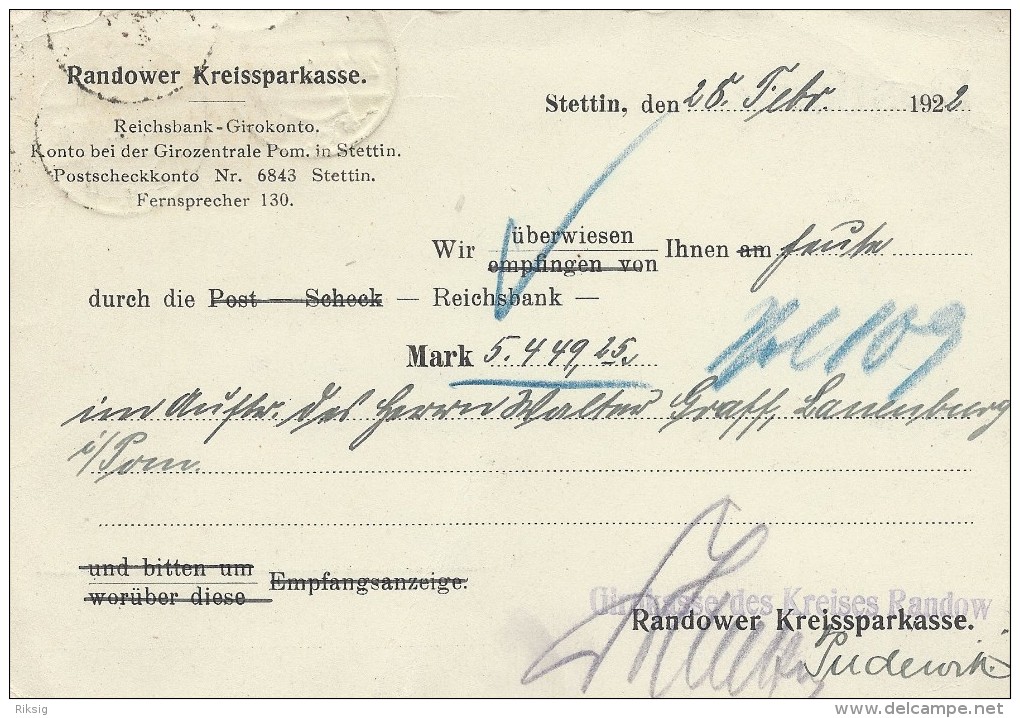 Randower Kreissparkasse.
Reichsbank-Girokonto.
Konto bei der Girozentrale Pom. in Stettin.
Postscheckkonto Nr. 6843 Stettin.
Fernsprecher 130.
Stettin, den 25. Febr. 1922
Wir überwiesen empfingen von Ihnen am heute
durch die Post — Scheck — Reichsbank —
Mark 5.449,25.
109
im Auftr. des Herrn Walter Graff, Lauenburg
i/Pom.
und bitten um
worüber diese Empfangsanzeige.
Girokasse des Kreises Randow
Randower Kreissparkasse.
Riksig
delcampe.net